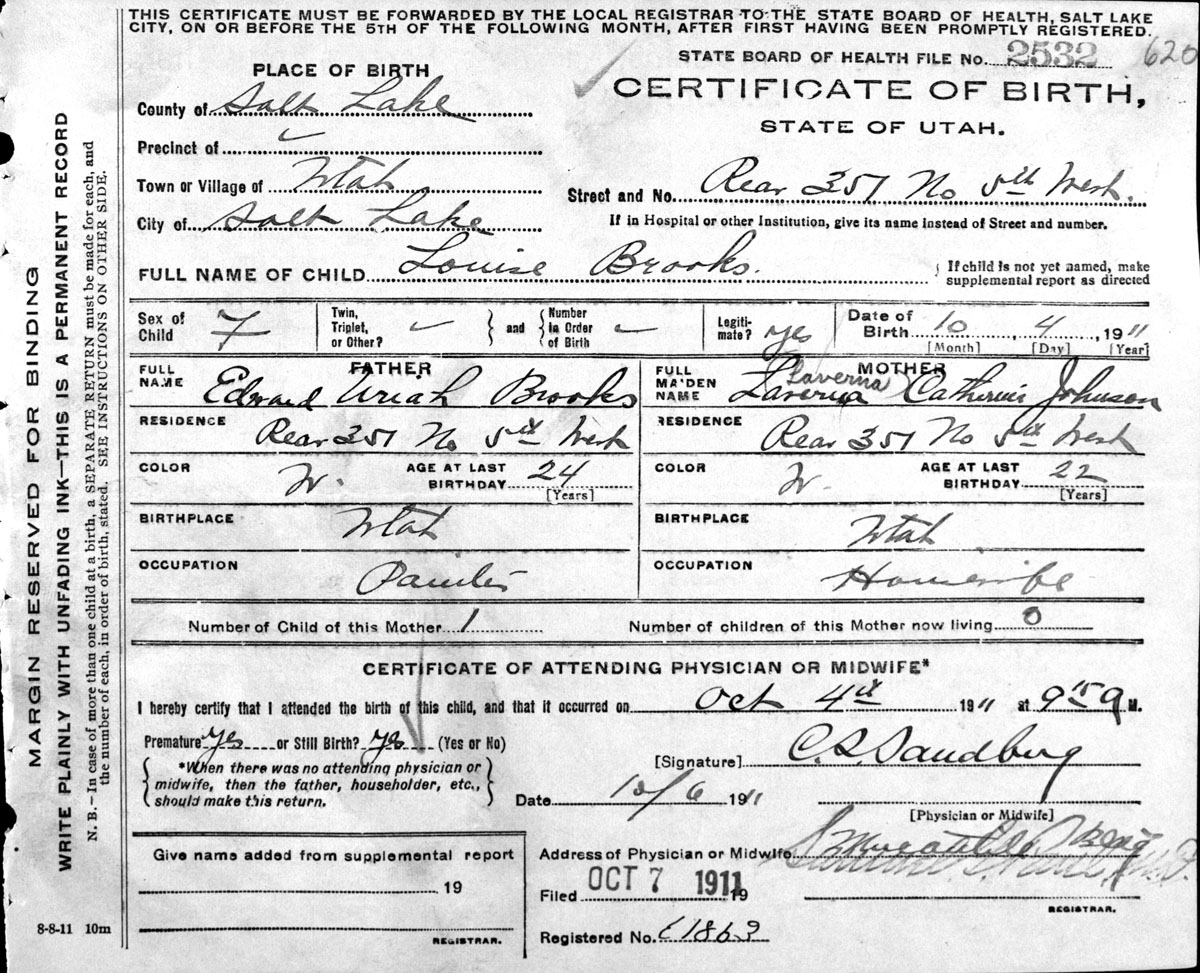 THIS CERTIFICATE MUST BE FORWARDED BY THE LOCAL REGISTRAR TO THE STATE BOARD OF HEALTH, SALT LAKE
CITY, ON OR BEFORE THE 5TH OF THE FOLLOWING MONTH, AFTER FIRST HAVING BEEN PROMPTLY REGISTERED.
STATE BOARD OF HEALTH FILE NO. 2532 620
PLACE OF BIRTH
CERTIFICATE OF BIRTH,
STATE OF UTAH.
County of Salt Lake
Precinct of
Town or Village of Utah
Street and No. Rear 351 No 5th West.
City of Salt Lake
If in Hospital or other Institution, give its name instead of Street and number.
FULL NAME OF CHILD Louise Brooks.
If child is not yet named, make
supplemental report as directed
Sex of Child F
Twin, Triplet, or Other?
and
Number in Order of Birth
Legitimate? yes
Date of Birth 10, 4, 1911
[Month] [Day] [Year]
FATHER
FULL NAME Edward Uriah Brooks
RESIDENCE Rear 351 No 5th West
COLOR W. AGE AT LAST BIRTHDAY 24
[Years]
BIRTHPLACE Utah
OCCUPATION Painter
MOTHER
Laverna
FULL MAIDEN NAME Laverna Catherine Johnson
RESIDENCE Rear 351 No 5th West
COLOR W. AGE AT LAST BIRTHDAY 22
[Years]
BIRTHPLACE Utah
OCCUPATION Housewife
Number of Child of this Mother 1
Number of children of this Mother now living 0
CERTIFICATE OF ATTENDING PHYSICIAN OR MIDWIFE*
I hereby certify that I attended the birth of this child, and that it occurred on Oct 4th 1911 at 9 15 a M.
Premature yes or Still Birth? yes (Yes or No)
*When there was no attending physician or
midwife, then the father, householder, etc.,
should make this return.
[Signature] C. L. Sandberg
Date 10/6 1911
[Physician or Midwife]
Give name added from supplemental report
19
REGISTRAR.
Address of Physician or Midwife
Filed OCT 7 1911 19
REGISTRAR.
Registered No. 1863
8-8-11 10m
MARGIN RESERVED FOR BINDING
WRITE PLAINLY WITH UNFADING INK—THIS IS A PERMANENT RECORD
N. B.—In case of more than one child at a birth, a SEPARATE RETURN must be made for each, and
the number of each, in order of birth, stated. SEE INSTRUCTIONS ON OTHER SIDE.